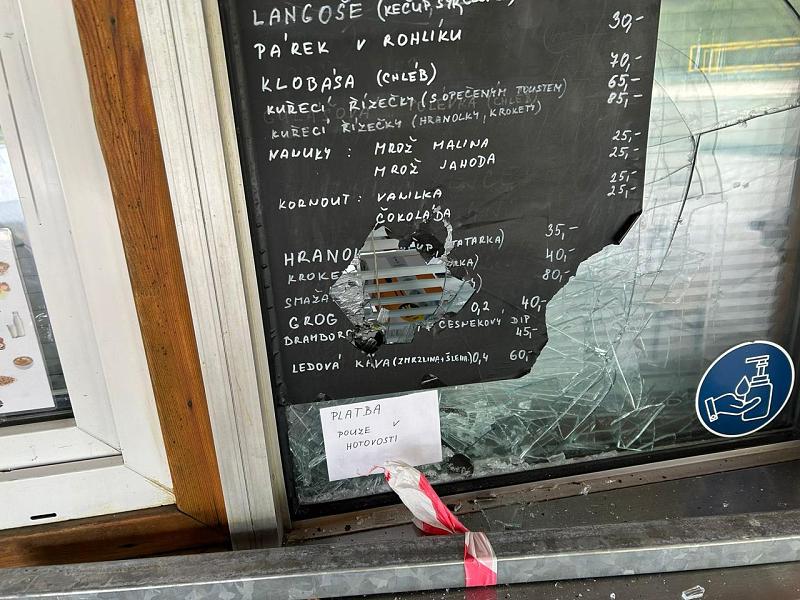 LANGOŠE (KEČUP, SÝR
PÁREK V ROHLÍKU 30,-
KLOBÁSA (CHLÉB) 70,-
KUŘECÍ ŘÍZEČKY (S OPEČENÝM TOUSTEM) 65,-
KUŘECÍ ŘÍZEČKY (HRANOLKY, KROKETY) 85,-
NANUKY: MROŽ MALINA 25,-
MROŽ JAHODA 25,-
KORNOUT: VANILKA 25,-
ČOKOLÁDA 25,-
HRANOL ČUP, TATARKA) 35,-
KROKE RKA) 40,-
SMAŽ 80,-
GROG 0,2 40,-
BRAMBOR ČESNEKOVÝ DIP 45,-
LEDOVÁ KÁVA (ZMRZLINA + ŠLEHA.) 0,4 60,-
PLATBA
POUZE V
HOTOVOSTI